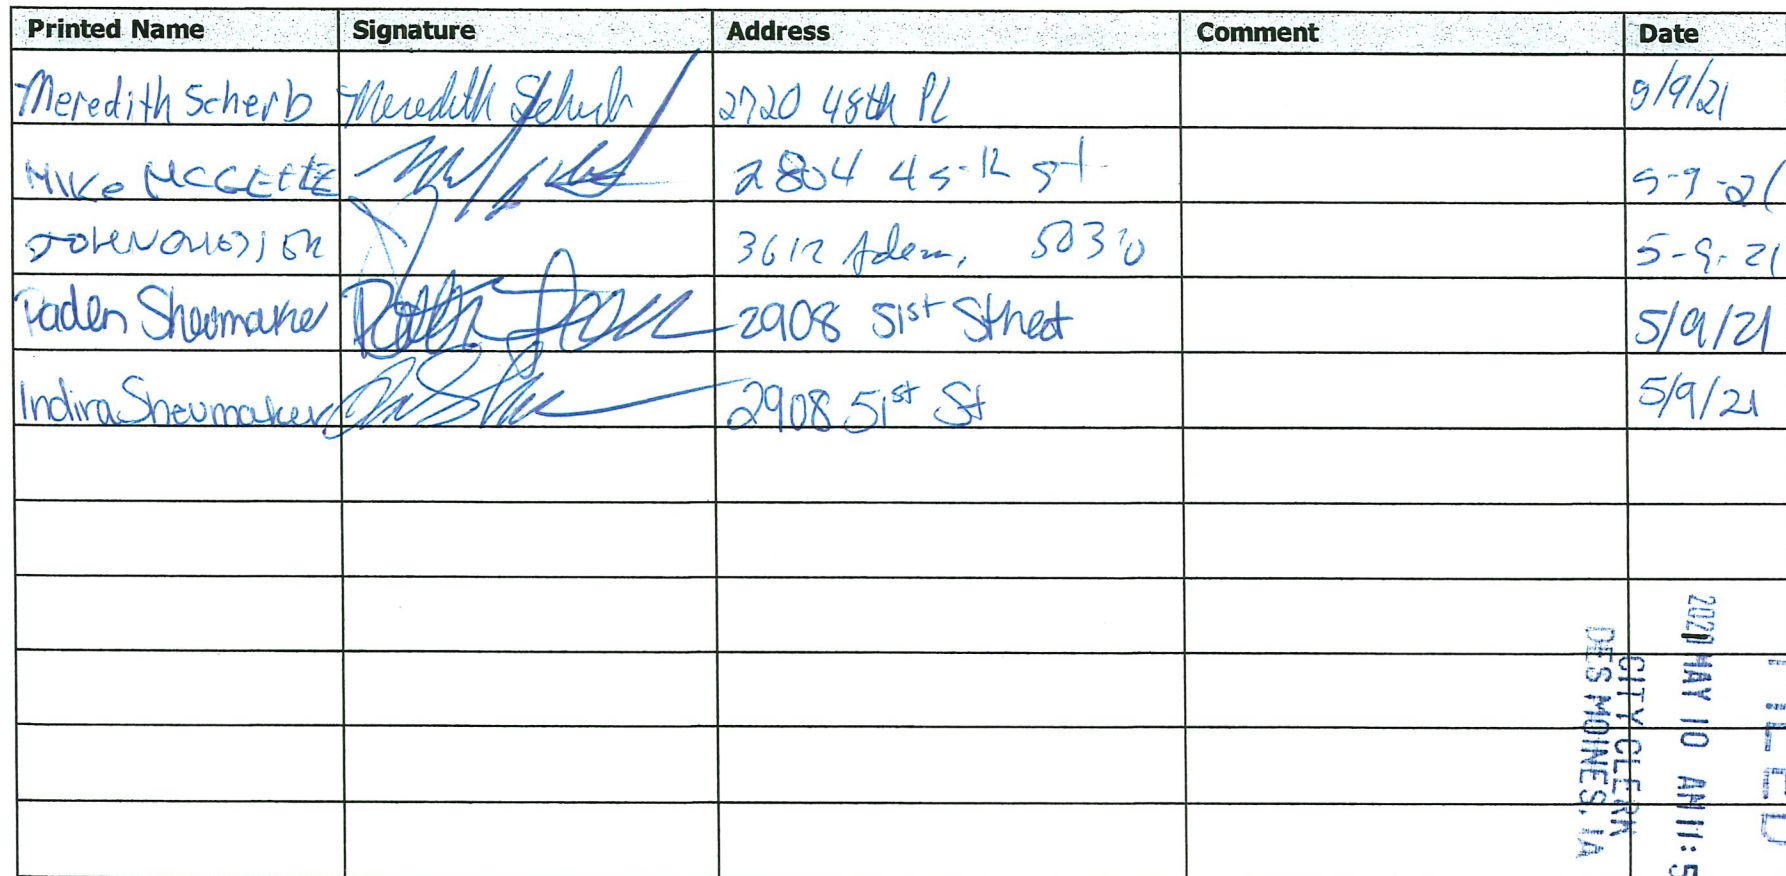 Printed Name Signature Address Comment Date
Meredith Scherb Meredith Scherb 2720 48th Pl 5/9/21
Mike 2804 5-9-21
3612 5-9-21
Paden Sheumaker 2908 51st Street 5/9/21
Indira Sheumaker 2908 51st St 5/9/21
FILED
2021 MAY 10 AM 11: 5
CITY CLERK
DES MOINES, IA